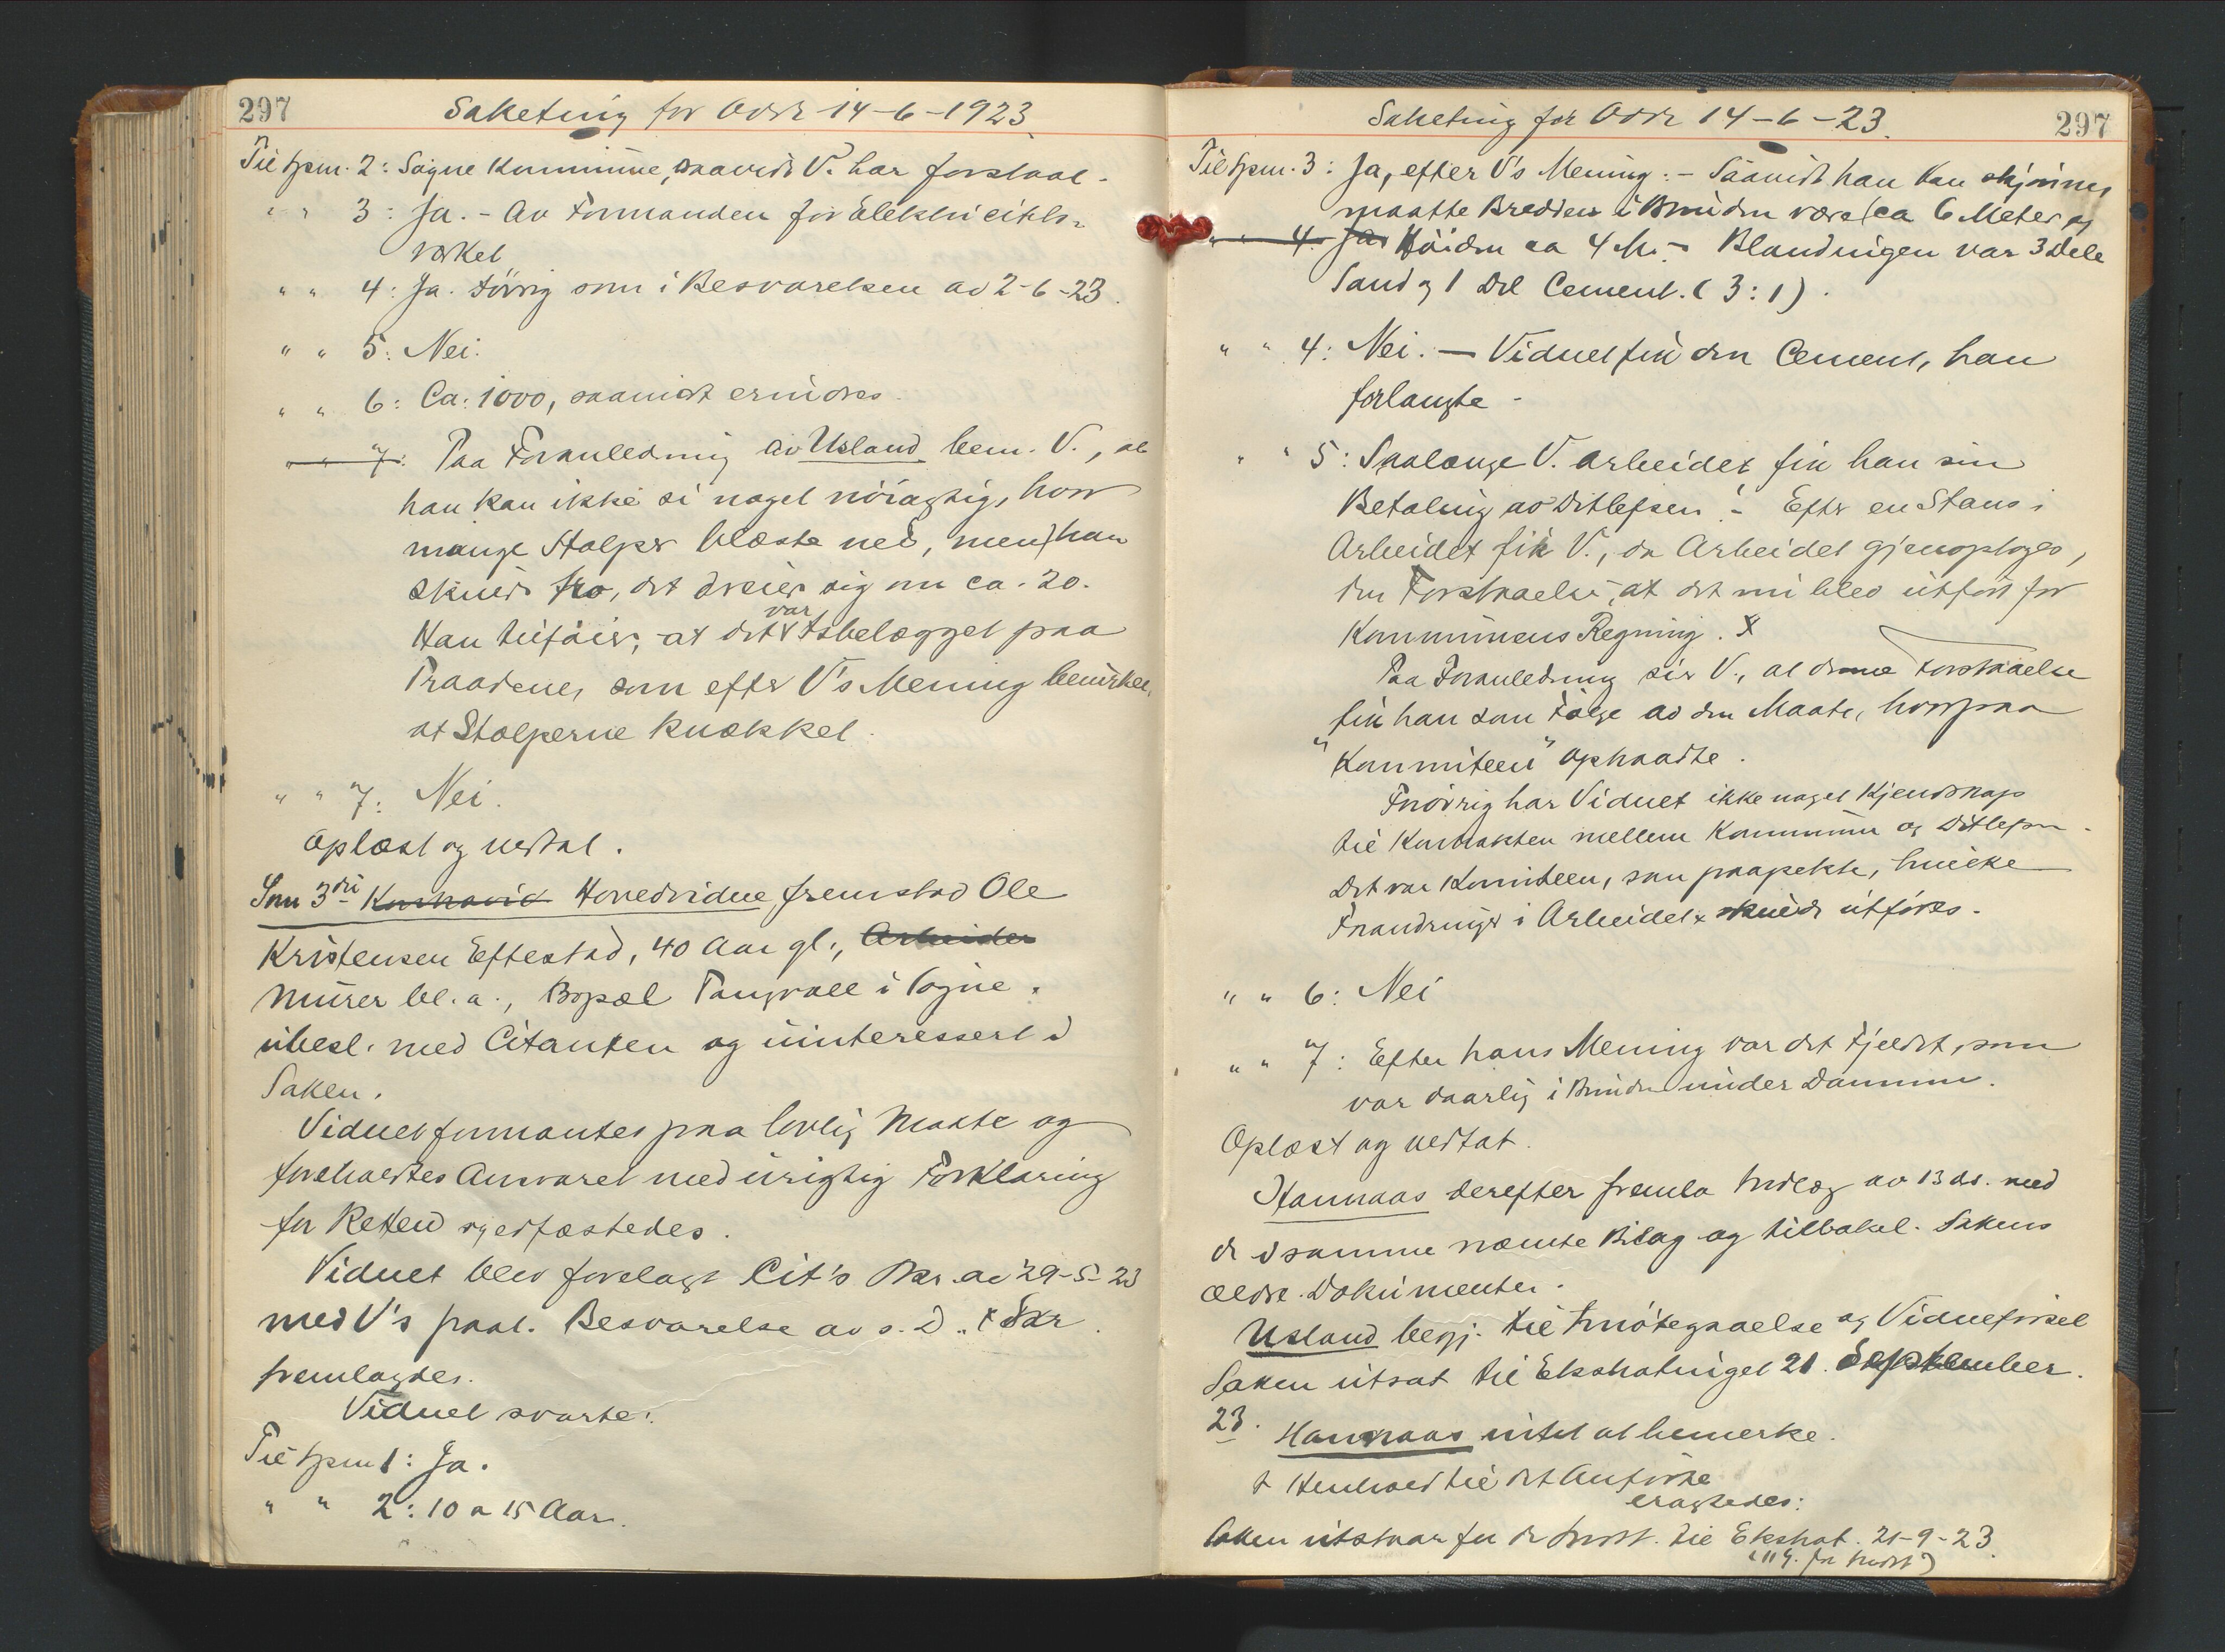 297
Saketing for Oddr 14-6-1923
Til spm. 2: Søgne Kommune, saavidt V. har forstaat.
" " 3: Ja. - Av Formanden for Elektricitets-
verket
" " 4: Ja. Førrig som i Besvarelsen av 2-6-23.
" " 5: Nei.
" " 6: Ca. 1000, saavidt erindres.
" " 7: Paa Foranledning av Usland bem. V., at
han kan ikke si noget nøiagtig, hvor
mange Stolper blæste ned, men han
skulde tro, det dreier sig om ca. 20.
Han tilføier, at det var Isbelægget paa
Traadene, som efter V's Mening bevirket,
at Stolperne knækket.
" " 7: Nei.
Oplæst og vedtat.
Som 3die Kontravid Hovedvidne fremstod Ole
Kristensen Eftestad, 40 Aar gl., Arbeider
Murer bl. a., Bopæl Tangvall i Søgne.
ubesl. med Citanten og uinteressert i
Saken.
Vidnet formantes paa lovlig Maate og
foreholdtes Ansvaret med urigtig Forklaring
for Retten og edfæstedes.
Vidnet blev forelagt Cit's Skr. av 29-5-23
med V's paat. Besvarelse av s. D. Skr.
fremlagdes.
Vidnet svarte:
Til spm 1: Ja.
" " 2: 10 a 15 Aar.
Saketing for Oddr 14-6-23.
297
Til spm. 3: Ja, efter V's Mening. - Saavidt han kan skjønne,
maatte Bredden i Bunden være ca 6 Meter og
" " 4. Ja Høiden ca 4 M. - Blandingen var 3 Dele
Sand og 1 Del Cement. (3:1).
" " 4: Nei. - Vidnet fik den Cement, han
forlangte.
" " 5: Saalænge V. arbeidet fik han sin
Betaling av Ditlefsen. - Efter en Stans i
Arbeidet fik V., da Arbeidet gjenoptoges,
den Forstaaelse, at det nu blev utført for
Kommunens Regning. X
Paa Foranledning sier V., at denne Forstaaelse
fik han som Følge av den Maate, hvorpaa
"Kommiteen" optraadte.
Forøvrig har Vidnet ikke noget Kjendskap
til Kontrakten mellem Kommunen og Ditlefsen.
Det var Komiteen, som paapekte, hvilke
Forandringer i Arbeidet skulde utføres.
" " 6: Nei
" " 7: Efter hans Mening var det Fjeldet, som
var daarlig i Bunden under Dammen.
Oplæst og vedtat.
Hannaas derefter fremla Indlæg av 13 ds. med
de i samme nævnte Bilag og tilbakel. Sakens
ældre Dokumenter.
Usland begj. til Imøtegaaelse og Vidneførsel
Saken utsat til Ekstratinget 21. September.
23.
Hannaas intet at bemerke.
I Henhold til det Anførte
eragtedes:
Saken utstaar for de Indst. til Ekstrat. 21-9-23.